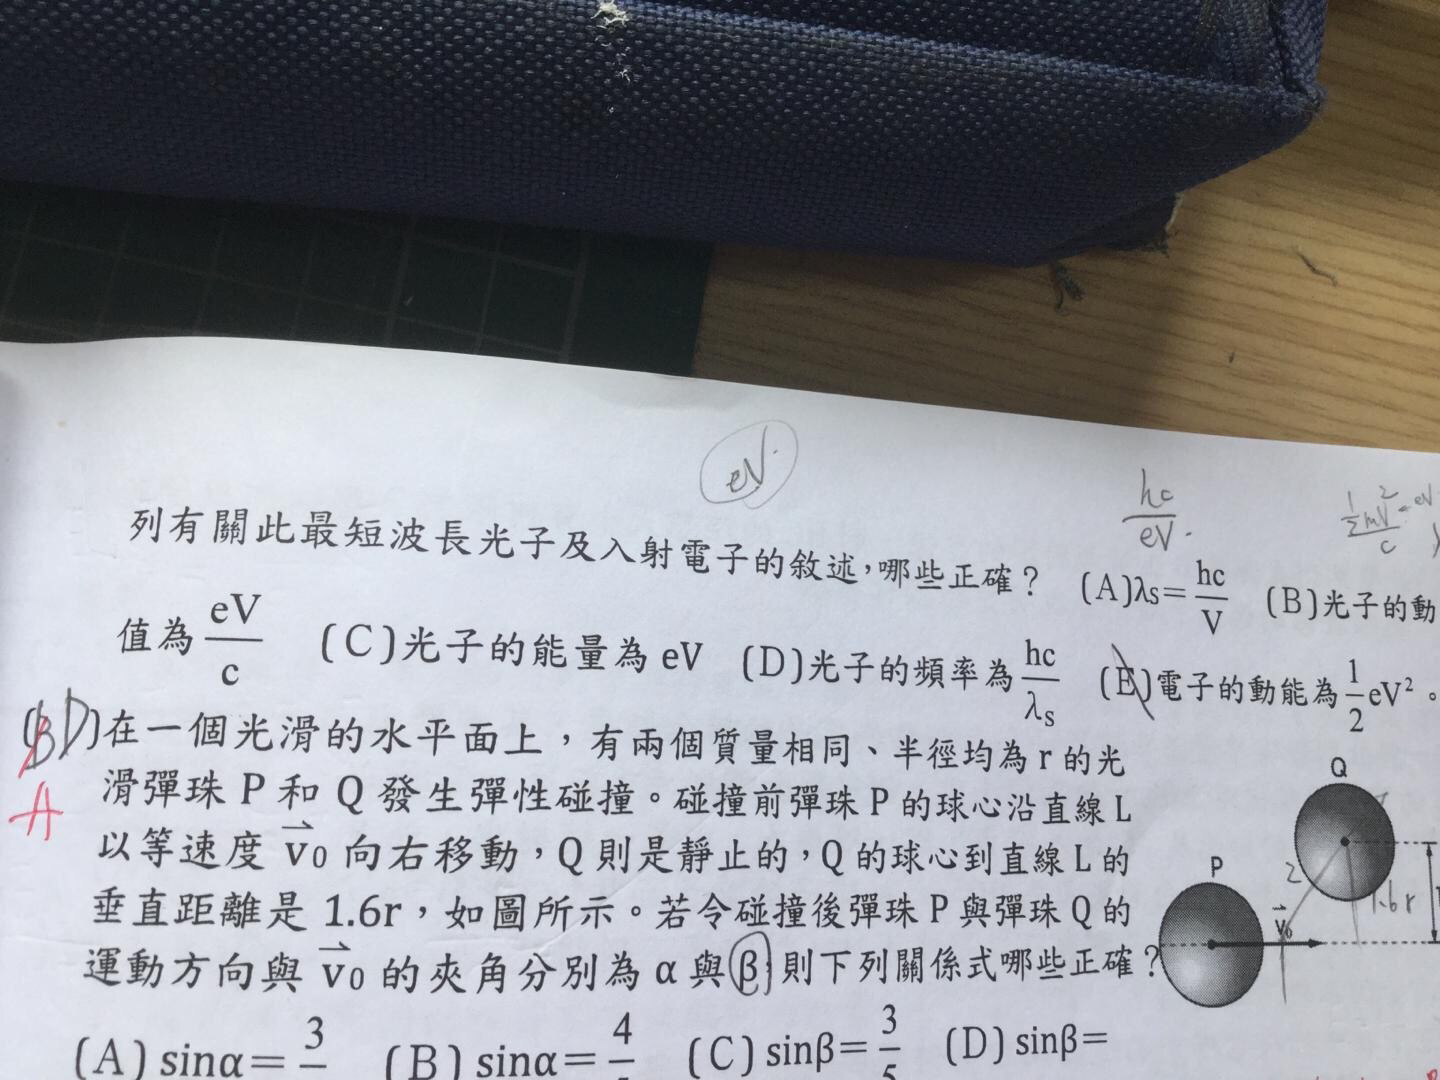 eV
hc
eV
列有關此最短波長光子及入射電子的敘述，哪些正確？ (A)λs=hc/V (B)光子的動
值為 eV/c (C)光子的能量為 eV (D)光子的頻率為 hc/λs (E)電子的動能為 1/2 eV²。
在一個光滑的水平面上，有兩個質量相同、半徑均為 r 的光
滑彈珠 P 和 Q 發生彈性碰撞。碰撞前彈珠 P 的球心沿直線 L
A
以等速度 v₀ 向右移動，Q 則是靜止的，Q 的球心到直線 L 的
垂直距離是 1.6r，如圖所示。若令碰撞後彈珠 P 與彈珠 Q 的
運動方向與 v₀ 的夾角分別為 α 與 β，則下列關係式哪些正確？
Q
P
2
1.6r
v₀
(A) sinα= 3 (B) sinα= 4 (C) sinβ= 3/5 (D) sinβ=